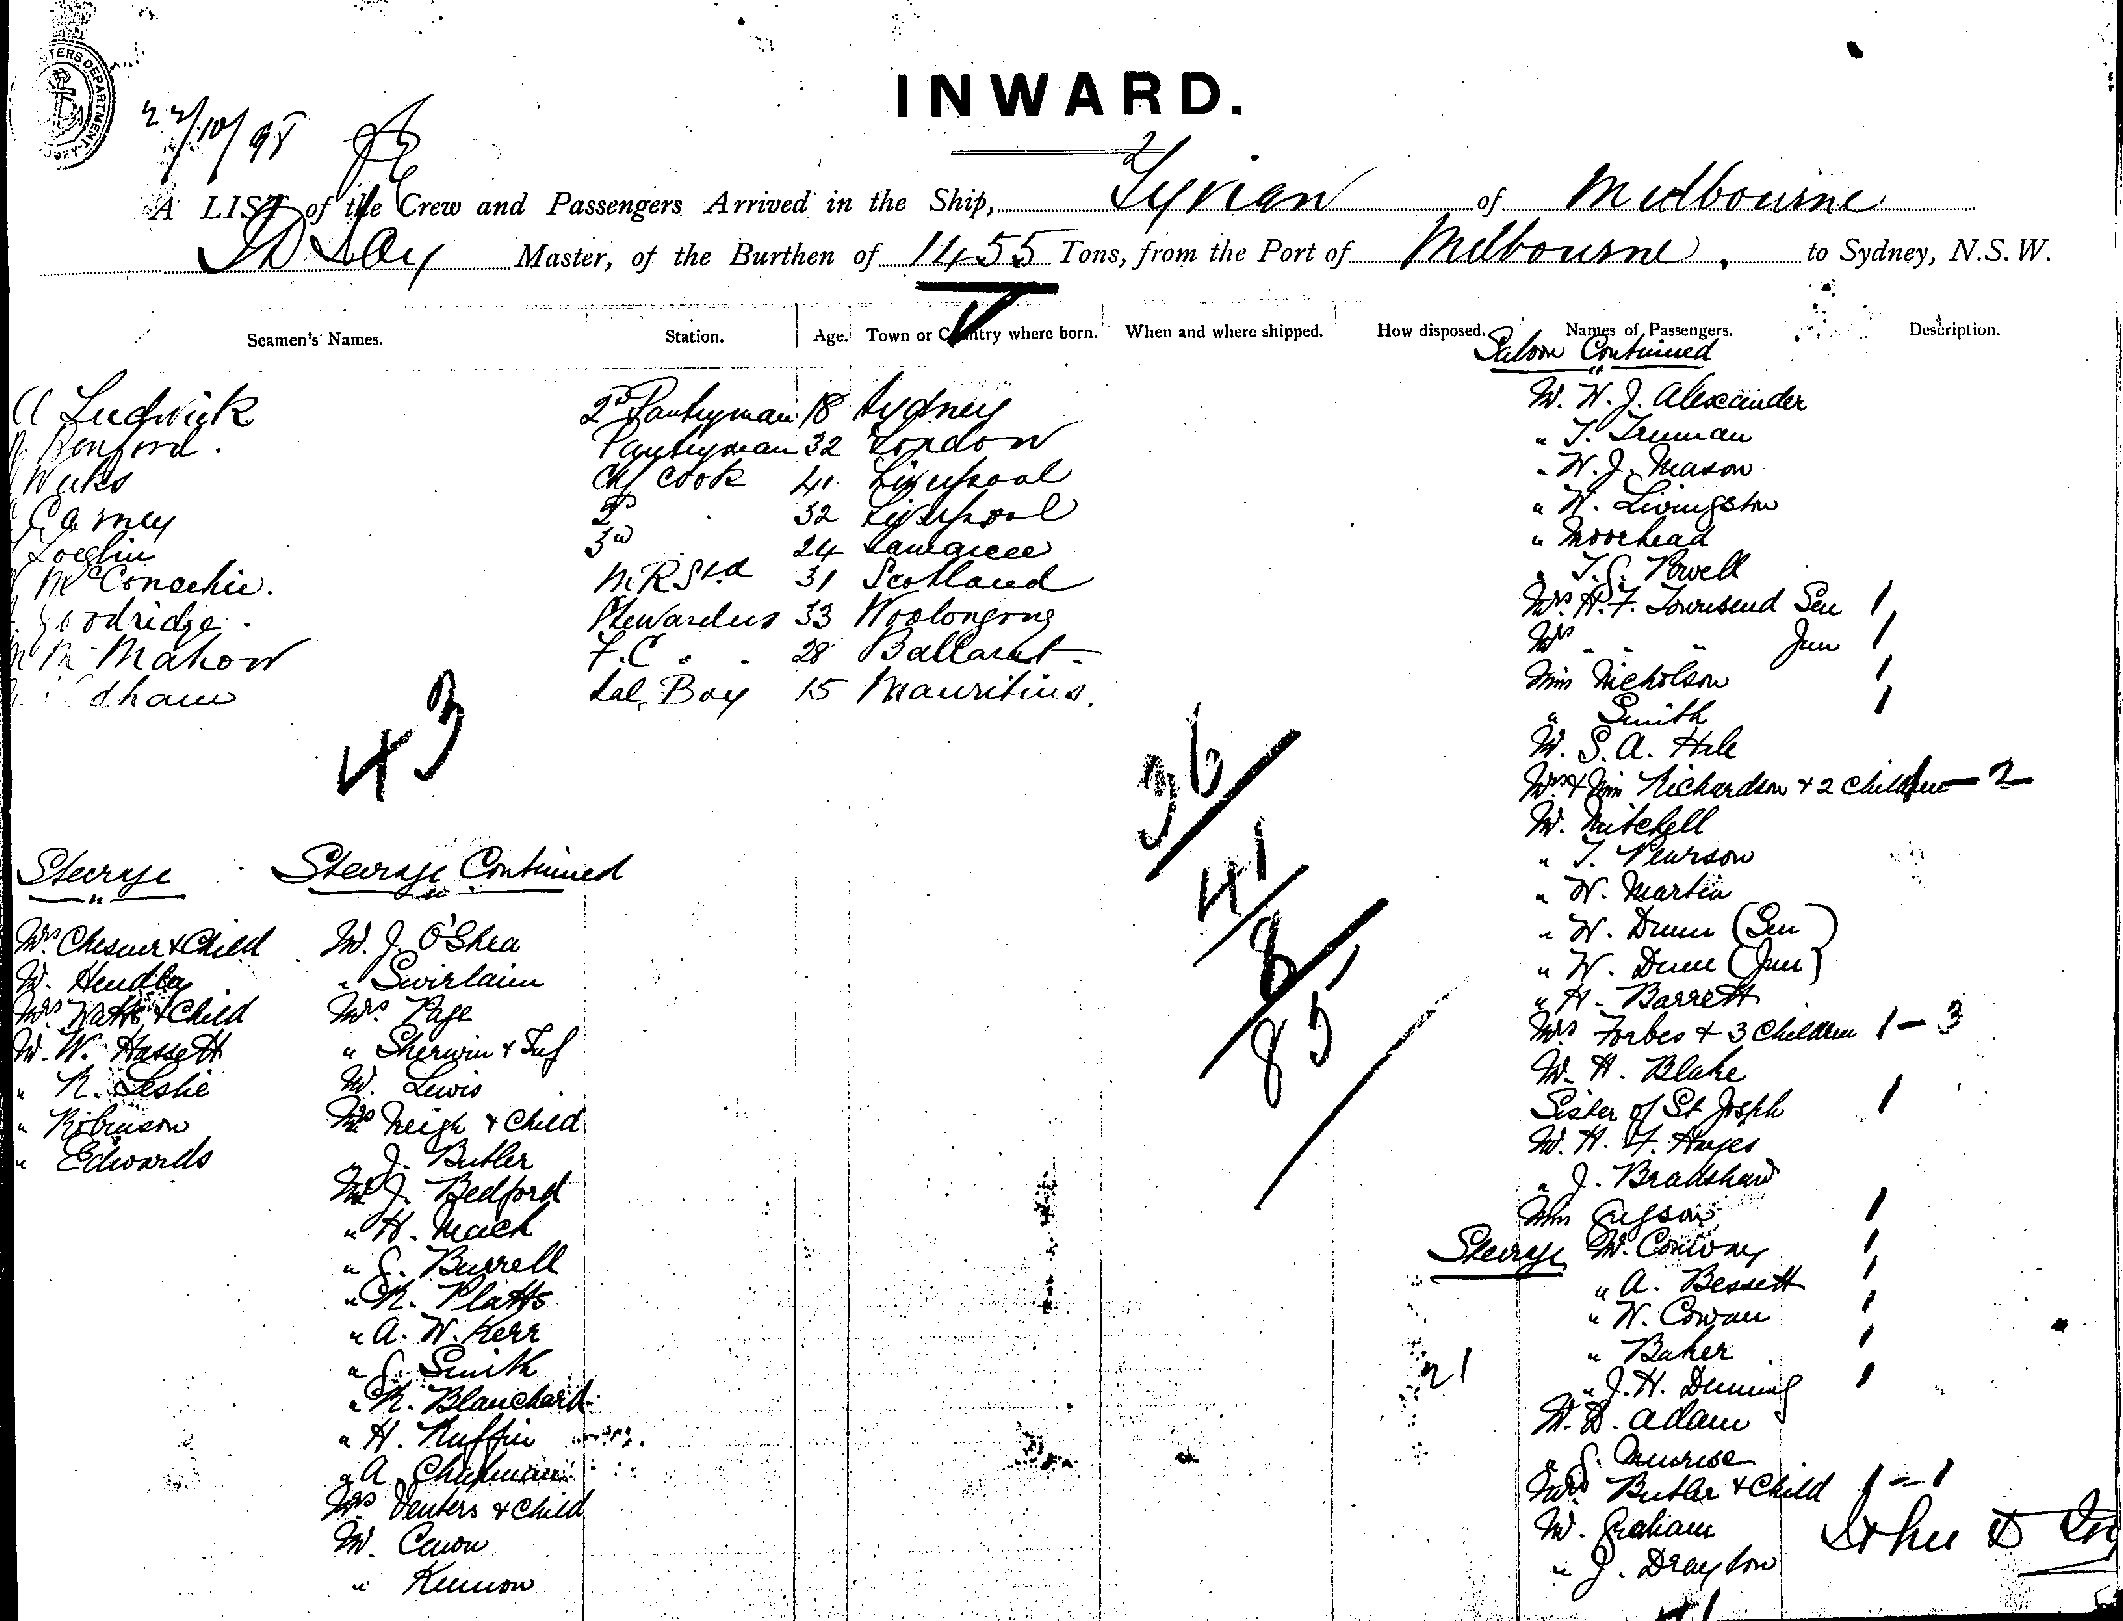 INWARD.
22/10/98
A LIST of the Crew and Passengers Arrived in the Ship, Tyrian of Melbourne
Master, of the Burthen of 1455 Tons, from the Port of Melbourne, to Sydney, N.S.W.
Seamen's Names. Station. Age. Town or Country where born. When and where shipped. How disposed. Names of Passengers. Description.
Ludwick 2nd Pantryman 18 Sydney
Pantryman 32 London
Weeks Cook 41 Liverpool
Carney 2nd 32 Liverpool
3rd 24
McConachie. M R Std 31 Scotland
Goodridge. Stewardess 33 Woolongong
McMahon F.C " " 28 Ballarat
Boy 15 Mauritius.
43
36
41
8
85
Saloon Continued
"
Mr. W. J. Alexander
" T. Truman
" W. J. Mason
" W. Livingston
" Moorhead
" T. G. Powell
Mrs. H. F. Townsend Sen 1
Mrs " " " Jun 1
Miss Nicholson 1
" Smith 1
Mr. S. A. Hele
Mrs & Miss Richardson & 2 Children - 2
Mr. Mitchell
" T. Pearson
" W. Martin
" W. Dunn (Sen)
" W. Dunn (Jun)
" H. Barrett
Mrs Forbes & 3 Children 1 - 3
Mr. H. Blake
Sister of St Joseph 1
Mr. H. F. Hayes
" J. Bradshaw
Miss 1
Steerage Mr. Conway 1
" A. Bessett 1
" W. Cowan 1
" Baker 1
21 " J. H. 1
Mr. D. Adam
" G. Munrise
Mrs. Butler & Child 1 - 1
Mr. Graham
" J. Drayton
Steerage
"
Mrs Chesner & Child
Mr. Hendley
Mrs Watts & Child
Mr. W. Hassett
" R. Leslie
" Robinson
" Edwards
Steerage Continued
"
Mr. J. O'Shea
"
Mrs. Page
" Sherwin & Inf
Mr. Lewis
Mrs Neigh & Child
" J. Butler
Mr J. Bedford
" H. Mack
" G. Burrell
" R. Platts
" A. W. Kerr
" G. Smith
" R. Blanchard
" H. Ruffin
" A. Chapman
Mrs Venters & Child
Mr. Canon
" Kinnon